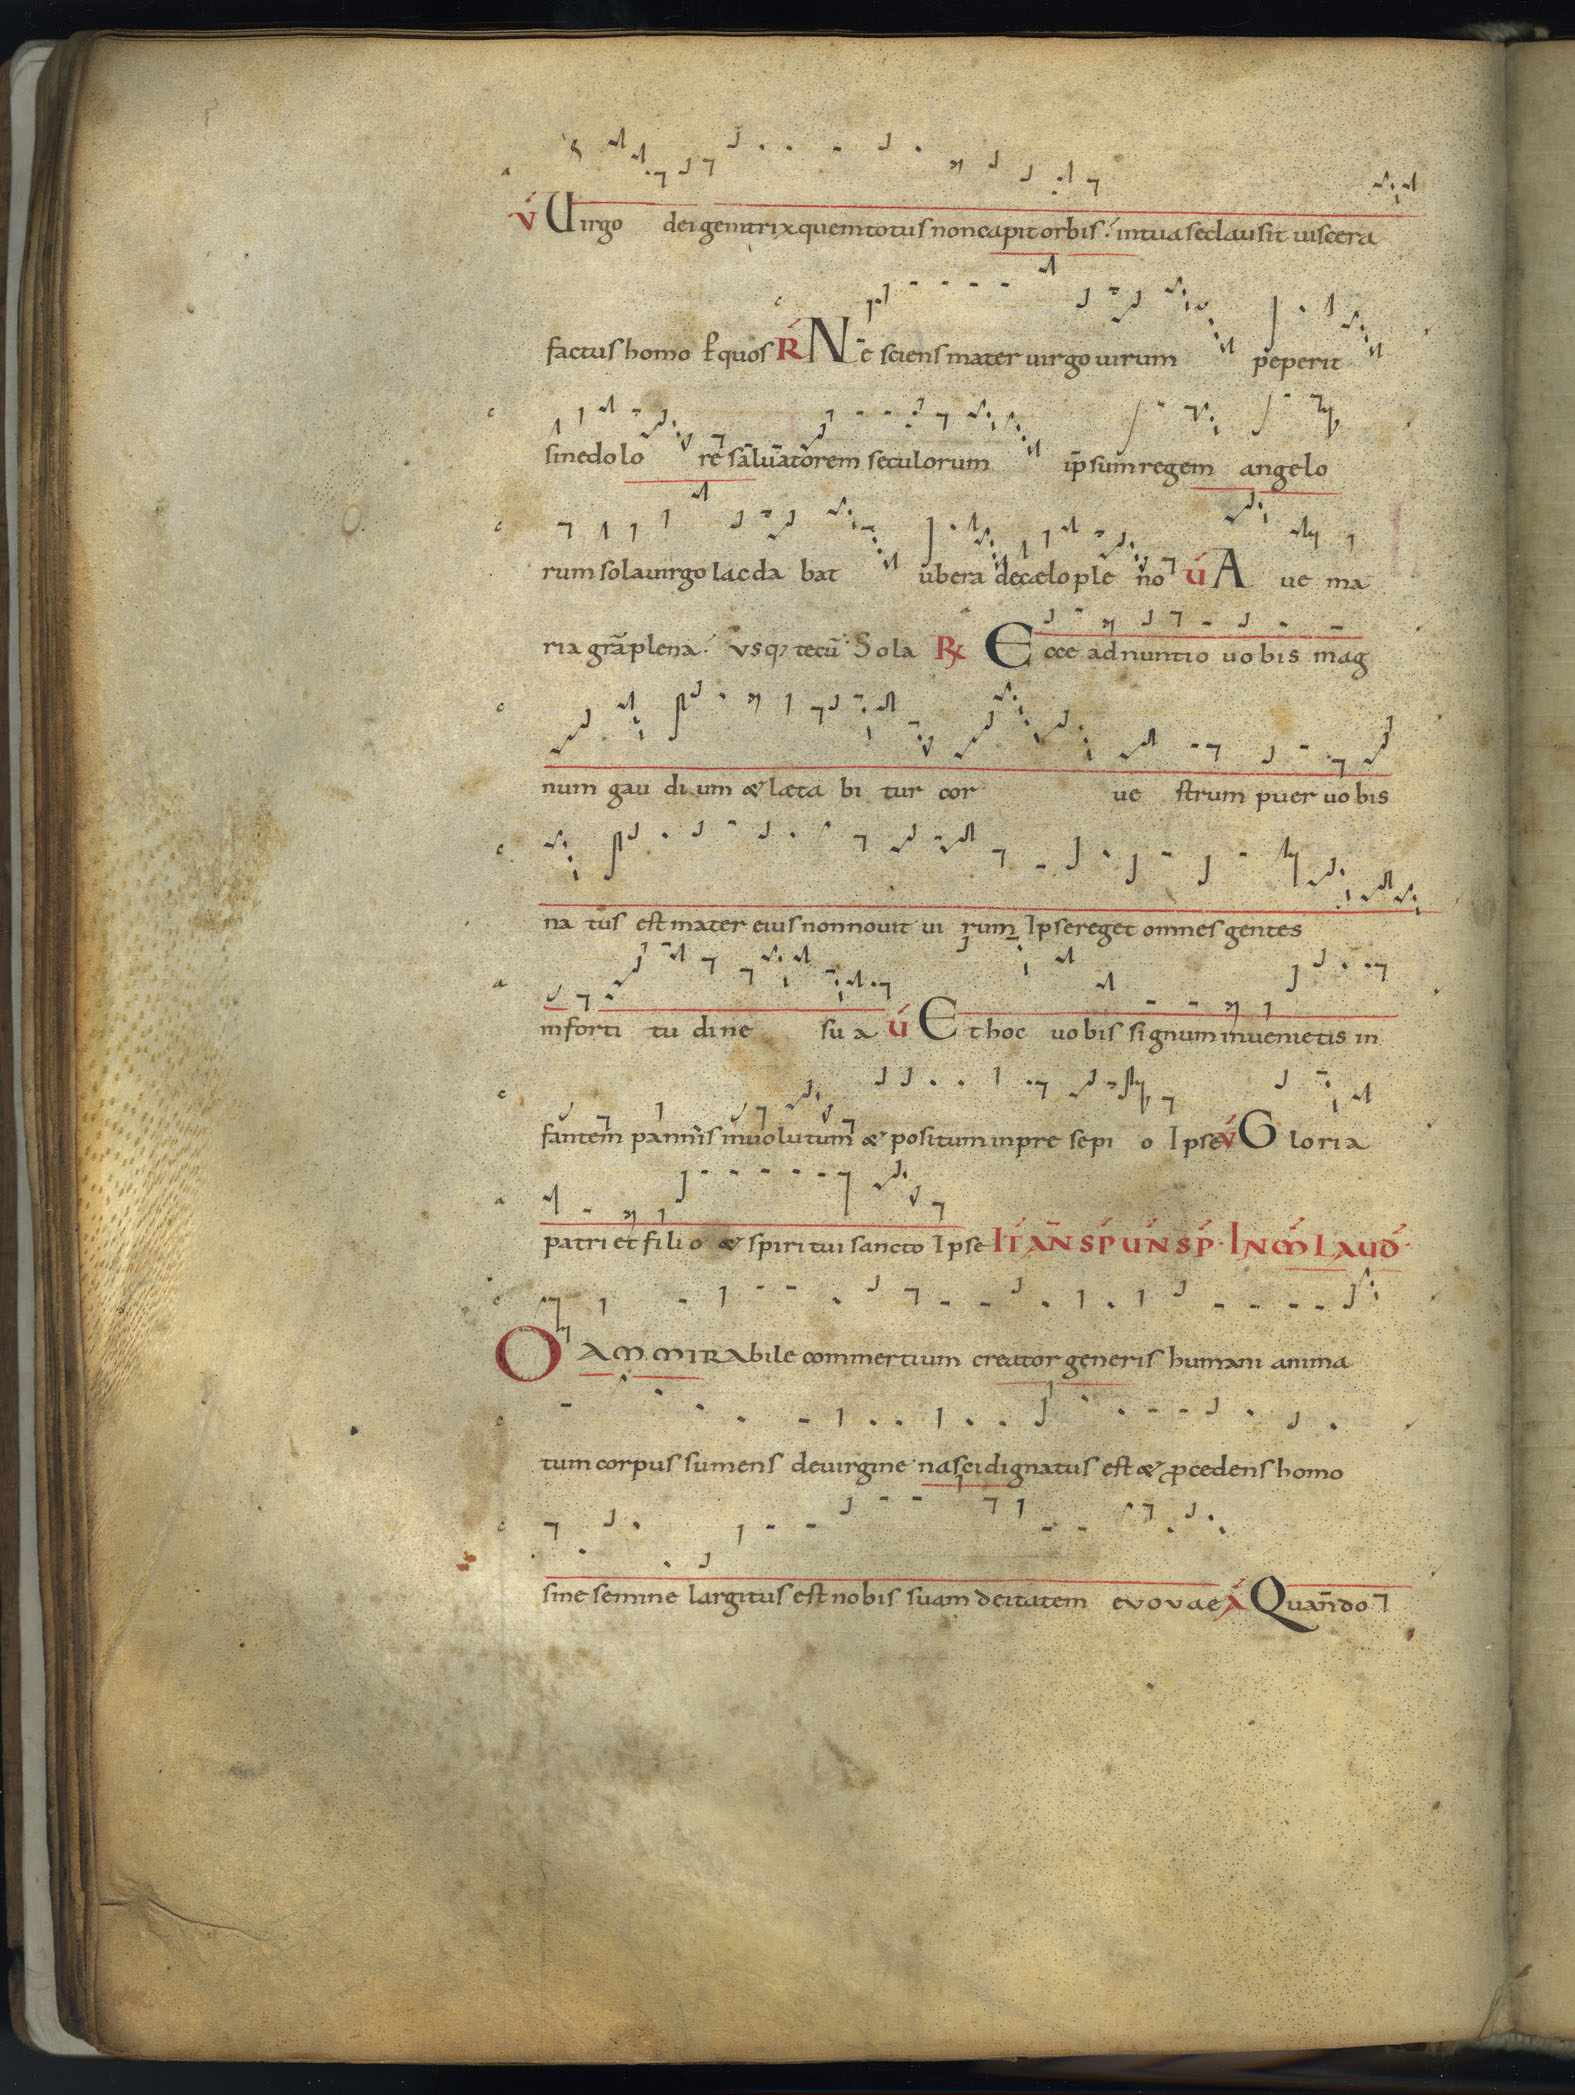 v́ Uirgo dei genitrix quem totus non capit orbis. in tua se clausit uiscera
factus homo P quos Ŕ Ne sciens mater uirgo uirum peperit
sine dolo re saluatorem seculorum ipsum regem angelo
rum sola uirgo lac da bat ubera de cælo ple no ú A ue ma
ria grā plena. vsq; tecū. Sola R Ecce adnuntio uobis mag
num gau di um & læta bi tur cor ue strum puer uobis
na tus est mater eius non nouit ui rum Ipse reget omnes gentes
in forti tu dine su a ú Et hoc uobis signum inuenietis in
fantem pannis inuolutum & positum in pre sepi o Ipse v́ Gloria
patri et filio & spiritui sancto Ipse IT́ AN̄ SṔ UŃ SṔ. IN Ḿ LAUD́.
O AM MIRAbile commertium creator generis humani anima
tum corpus sumens de uirgine nasci dignatus est & pcedens homo
sine semine largitus est nobis suam deitatem evovae Á Quando